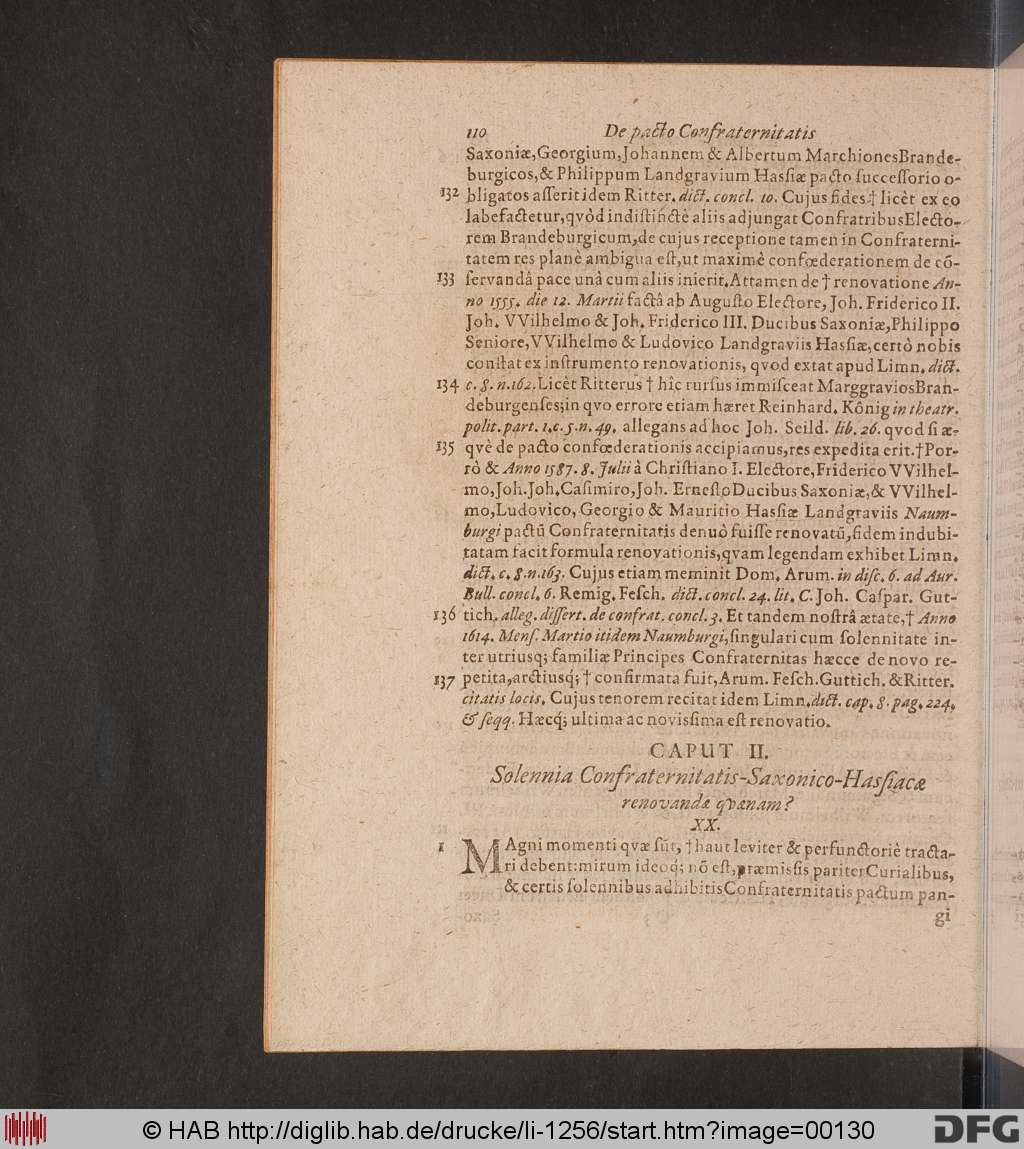 110 De pacto Confraternitatis
Saxoniæ,Georgium,Johannem & Albertum MarchionesBrande-
burgicos,& Philippum Landgravium Haſſiæ pacto ſucceſſorio o-
132 bligatos aſſerit idem Ritter. dict. concl. 10. Cujus fides † licèt ex eo
labefactetur,qvòd indiſtinctè aliis adjungat ConfratribusElecto-
rem Brandeburgicum,de cujus receptione tamen in Confraterni-
tatem res planè ambigua eſt,ut maximè confœderationem de cõ-
133 ſervandâ pace unà cum aliis inierit.Attamen de † renovatione An-
no 1555. die 12. Martii factâ ab Auguſto Electore, Joh. Friderico II.
Joh. VVilhelmo & Joh. Friderico III. Ducibus Saxoniæ,Philippo
Seniore,VVilhelmo & Ludovico Landgraviis Haſſiæ,certò nobis
conſtat ex inſtrumento renovationis, qvod extat apud Limn. dict.
134 c. 8. n.162.Licèt Ritterus † hîc rurſus immiſceat MarggraviosBran-
deburgenſes;in qvo errore etiam hæret Reinhard. Kônig in theatr.
polit. part. 1.c. 5.n. 49. allegans ad hoc Joh. Seild. lib. 26. qvod ſi æ-
135 qvè de pacto confœderationis accipiamus,res expedita erit.†Por-
rò & Anno 1587. 8. Julii à Chriſtiano I. Electore,Friderico VVilhel-
mo,Joh.Joh.Caſimiro,Joh. ErneſtoDucibus Saxoniæ,& VVilhel-
mo,Ludovico, Georgio & Mauritio Haſſiæ Landgraviis Naum-
burgi pactũ Confraternitatis denuò fuiſſe renovatũ,fidem indubi-
tatam facit formula renovationis,qvam legendam exhibet Limn.
dict. c. 8.n.163. Cujus etiam meminit Dom. Arum. in diſc. 6. ad Aur.
Bull. concl. 6. Remig. Feſch. dict. concl. 24. lit. C. Joh. Caſpar. Gut-
136 tich. alleg. diſſert. de confrat. concl. 3. Et tandem noſtrâ ætate,† Anno
1614. Menſ. Martio itidem Naumburgi,ſingulari cum ſolennitate in-
ter utriusq; familiæ Principes Confraternitas hæcce de novo re-
137 petita,arctiusq́; † confirmata fuit,Arum. Feſch.Guttich. & Ritter.
citatis locis. Cujus tenorem recitat idem Limn.dict. cap. 8. pag. 224.
& ſeqq. Hæcq́; ultima ac noviſſima eſt renovatio.
CAPUT II.
Solennia Confraternitatis-Saxonico-Haſſiacæ
renovandæ qvænam?
XX.
1 MAgni momenti qvæ ſũt, † haut leviter & perfunctoriè tracta-
ri debent:mirum ideoq́; nõ eſt,præmiſſis pariter Curialibus,
& certis ſolennibus adhibitisConfraternitatis pactum pan-
gi
© HAB http://diglib.hab.de/drucke/li-1256/start.htm?image=00130
DFG